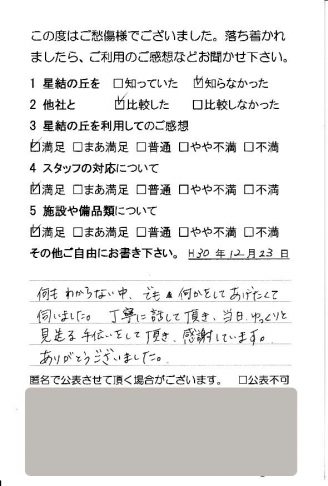 この度はご愁傷様でございました。落ち着かれ
ましたら、ご利用のご感想などお聞かせ下さい。
1 星結の丘を □知っていた ☑知らなかった
2 他社と ☑比較した □比較しなかった
3 星結の丘を利用してのご感想
☑満足 □まあ満足 □普通 □やや不満 □不満
4 スタッフの対応について
☑満足 □まあ満足 □普通 □やや不満 □不満
5 施設や備品類について
☑満足 □まあ満足 □普通 □やや不満 □不満
その他ご自由にお書き下さい。 H30年12月23日
何もわからない中、でも何かをしてあげたくて
伺いました。丁寧に話して頂き、当日ゆっくりと
見送る手伝いをして頂き、感謝しています。
ありがとうございました。
匿名で公表させて頂く場合がございます。 □公表不可